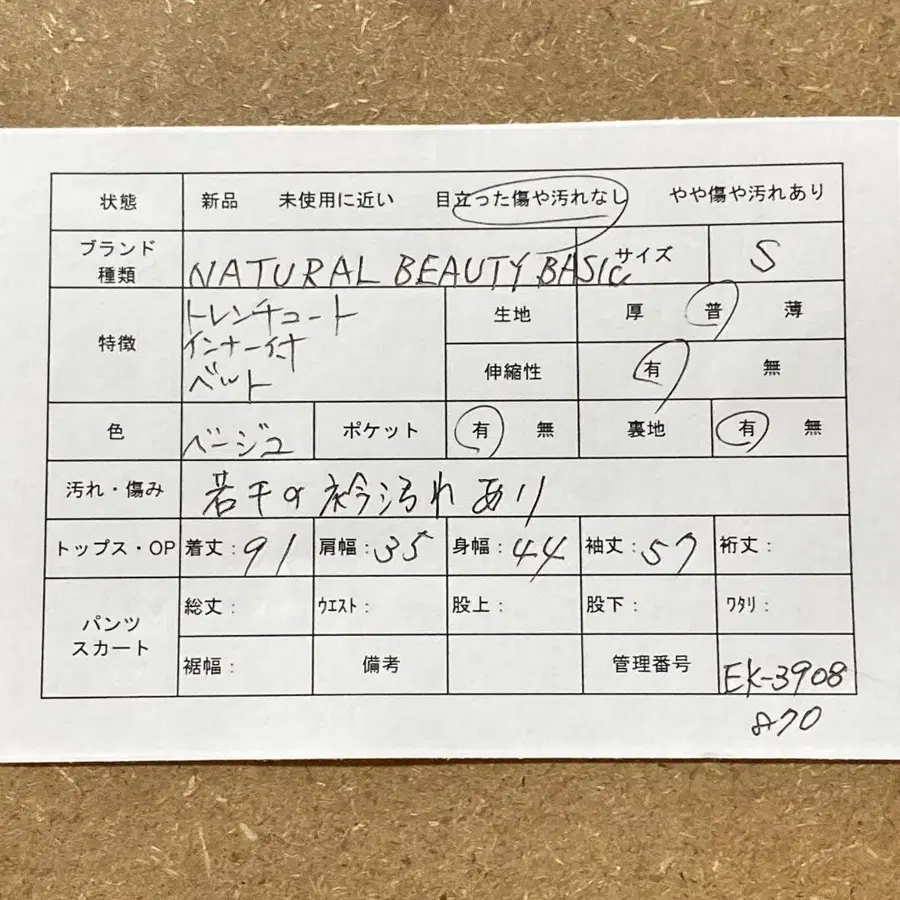 状態 新品 未使用に近い 目立った傷や汚れなし やや傷や汚れあり
ブランド 種類 NATURAL BEAUTY BASIC サイズ S
特徴 トレンチコート
インナー付
ベルト
生地 厚 普 薄
伸縮性 有 無
色 ベージュ ポケット 有 無 裏地 有 無
汚れ・傷み 若干の衿汚れあり
トップス・OP 着丈:91 肩幅:35 身幅:44 袖丈:57 裄丈:
パンツ スカート 総丈: ウエスト: 股上: 股下: ワタリ:
裾幅: 備考 管理番号 EK-3908
870